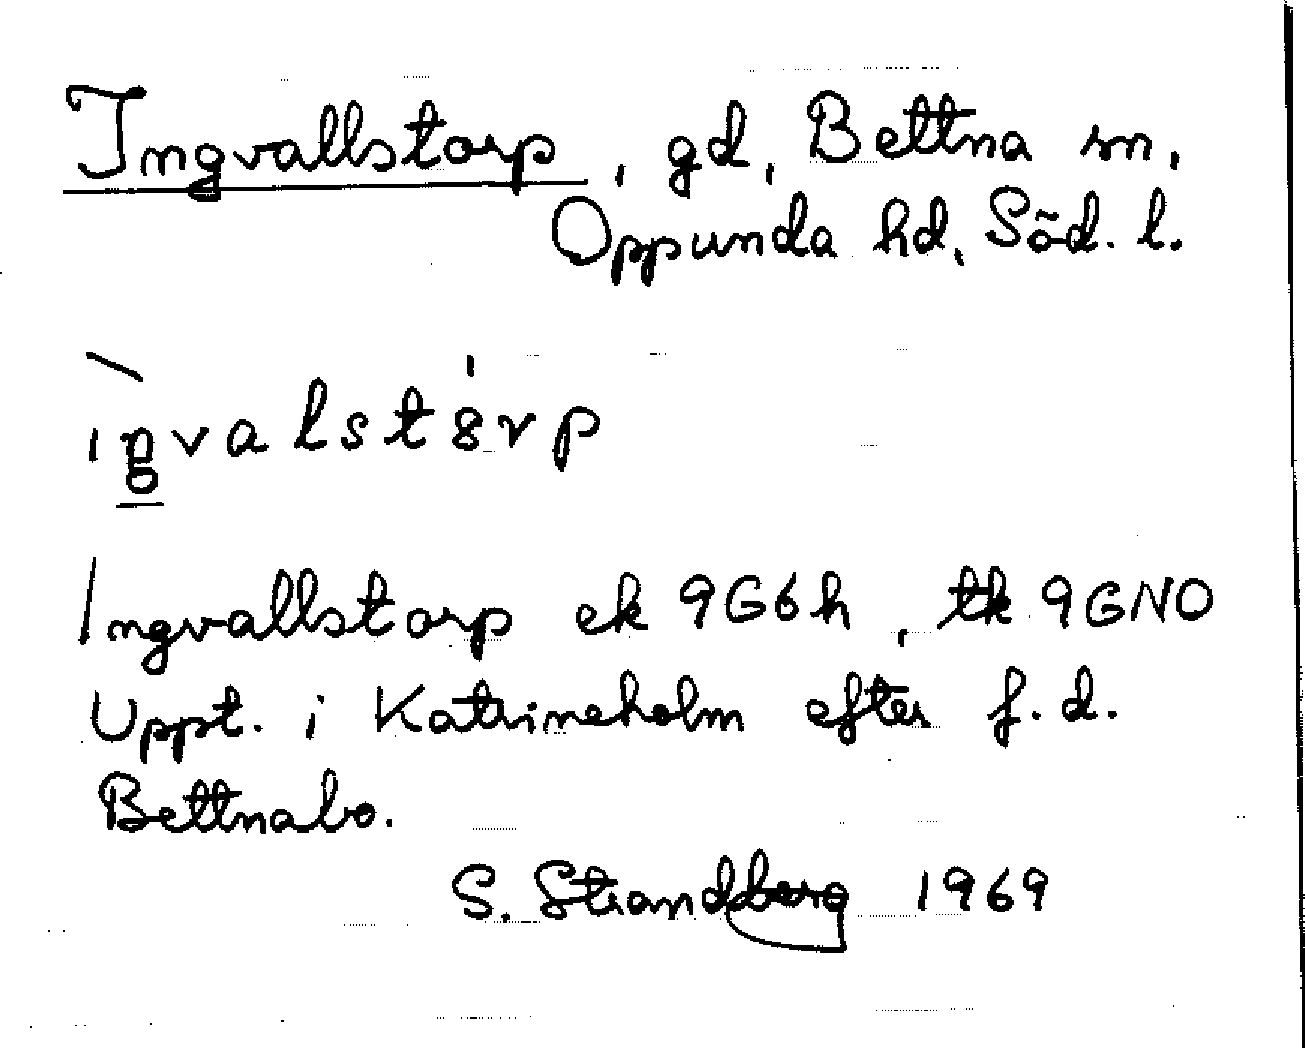 Ingvallstorp, gd, Bettna sn,
Oppunda hd, Söd. l.
Ingvallstorp ek 9G6h, tk 9GNO
Uppt. i Katrineholm efter f.d.
Bettnabo.
S. Strandberg 1969